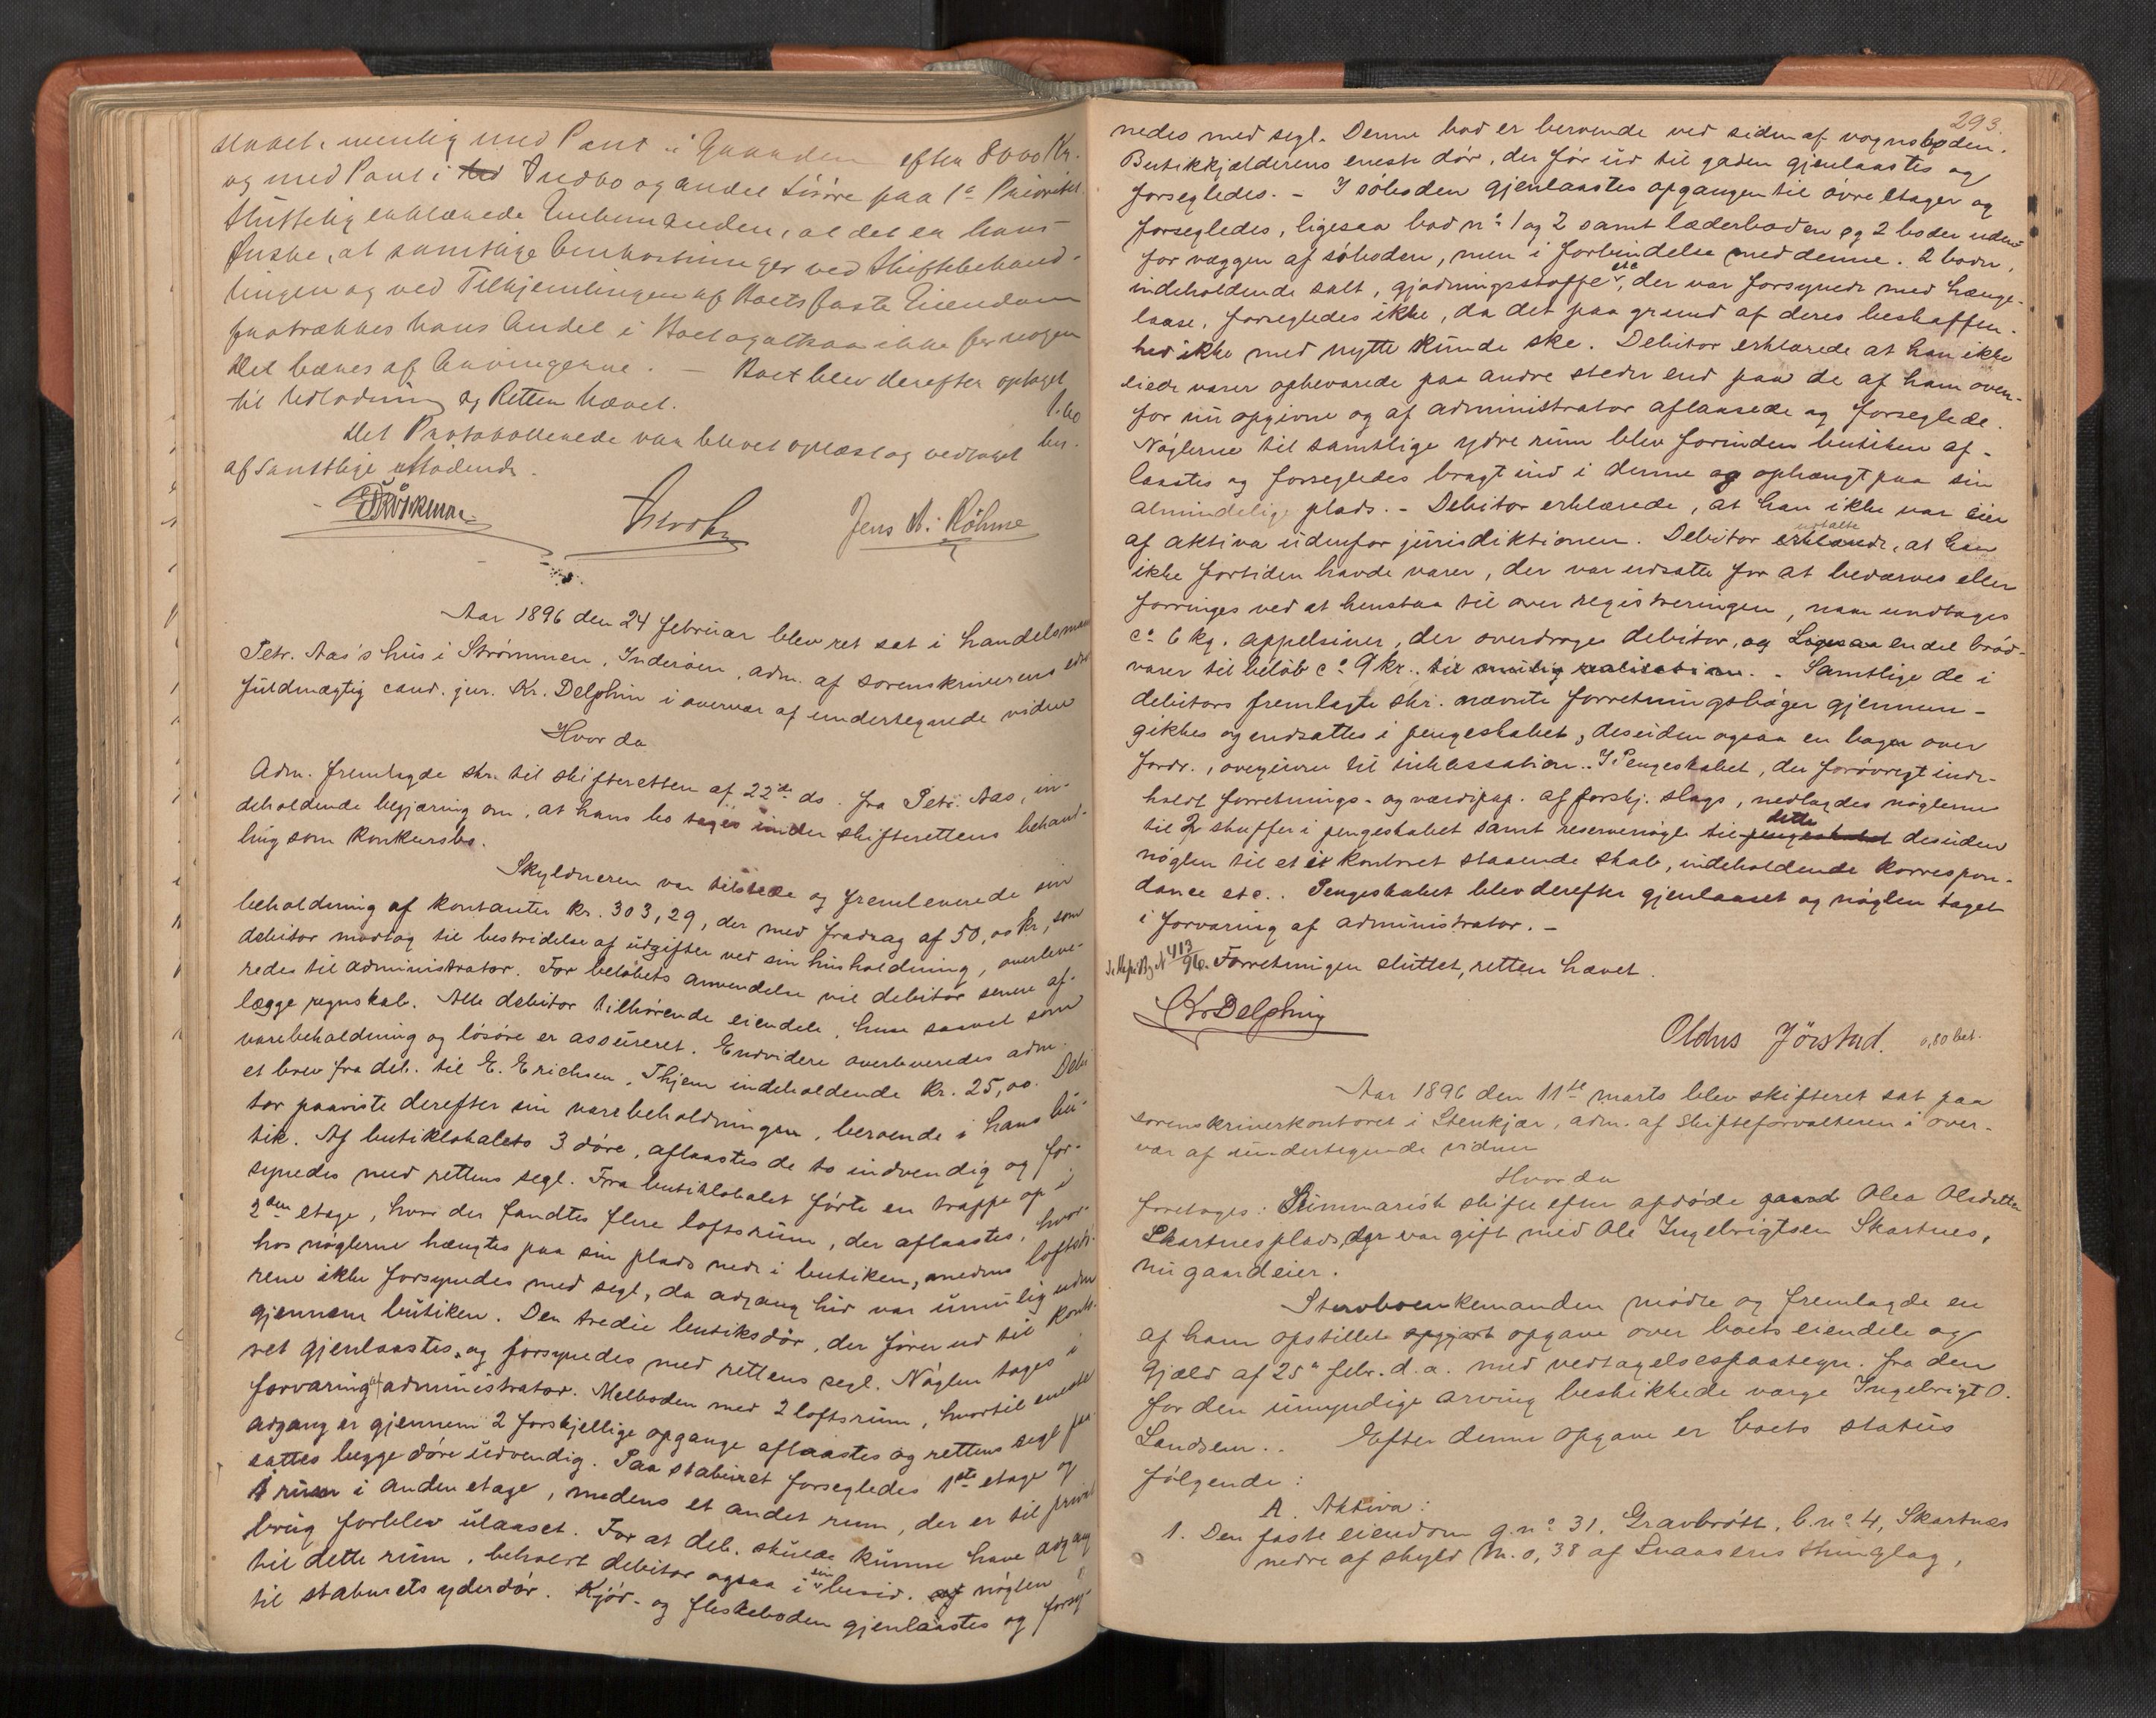 skabet, nemlig med Pant i Gaarden efter 8000 Kr.
og med Pant i Indbo og andet Løsøre paa 1e Prioritet.
Sluttelig erklærede Enkemanden, at det er hans
Ønske, at samtlige Omkostninger ved Skiftebehand-
lingen og ved Tilhjemlingen af Boets faste Eiendom
fratrækkes hans Andel i Boet og altsaa ikke for nogen
Del bæres af Arvingerne. – Boet blev derefter optaget
til Udlodning og Retten hævet.
Det Protokollerede var blevet oplæst og vedtaget
af samtlige Mødende.
Jens A. Røhme
Aar 1896 den 24 februar blev ret sat i handelsmand
Petr. Aas's hus i Strømmen, Inderøen, adm. af sorenskriverens edsv.
fuldmægtig cand. jur. Kr. Delphin i overvær af undertegnede vidne
Hvorda
Adm. fremlagde skr. til skifteretten af 22de ds. fra Petr. Aas, in-
deholdende begjæring om, at hans bo tages under skifterettens behand-
ling som konkursbo.
Skyldneren var tilstede og fremleverede sin
beholdning af kontanter kr. 303,29, der med fradrag af 50,00 kr, som
debitor modtog til bestridelse af udgifter ved sin husholdning, overleve-
redes til administrator. For beløbets anvendelse vil debitor senere af-
lægge regnskab. Alle debitor tilhørende eiendele, huse saavel som
varebeholdning og løsøre er assureret. Endvidere overleveredes adm.
et brev fra deb. til E. Erichsen, Thjem indeholdende kr. 25,00. Debi-
tor paaviste derefter sin varebeholdningen, beroende i hans bu-
tik. Af butiklokalets 3 døre, aflaastes de to indvendig og for-
synedes med rettens segl. Fra butiklokalet førte en trappe op i
2den etage, hvor der fandtes flere loftsrum, der aflaastes, hvor-
hos nøglerne hængtes paa sin plads nede i butiken, medens loftsdø-
rene ikke forsynedes med segl, da adgang hid var umulig uden
gjennem butiken. Den tredie butiksdør, der fører ud til konto-
ret gjenlaastes og forsynedes med rettens segl. Nøglen toges i
forvaring af administrator. Melboden med 2 loftsrum, hvortil eneste
adgang er gjennem 2 forskjellige opgange aflaastes og rettens segl paa-
sattes begge døre udvendig. Paa staburet forsegledes 1ste etage og
1 rum i anden etage, medens et andet rum, der er til privat
brug forblev ulaaset. For at deb. skulde kunne have adgang
til dette rum, beholdt debitor ogsaa i sin besid. nøglen
til staburets yderdør. Kjød- og fleskeboden gjenlaastes og forseg-
293.
nedes med segl. Denne bod er beroende ved siden af vognsboden.
Butikkjælderens eneste dør, der før ud til gaden gjenlaastes og
forsegledes. – I søboden gjenlaastes opgangen til øvre etager og
forsegledes, ligesaa bod no 1 og 2 samt læderboden og 2 boder uden-
for væggen af søboden, men i forbindelse med denne. 2 boder,
indeholdende salt, gjødningsstoffe etc, der var forsynede med hænge-
laase, forsegledes ikke, da det paa grund af deres beskaffen-
hed ikke med nytte kunde ske. Debitor erklærede at han ikke
eiede varer opbevarede paa andre steder end paa de af ham oven-
for nu opgivne og af administrator aflaasede og forseglede.
Nøglerne til samtlige ydre rum blev forinden butiken af-
laastes og forsegledes bragt ind i denne og ophængt paa sin
almindelige plads. – Debitor erklærede, at han ikke var eier
af aktiva udenfor jurisdiktionen. Debitor udtalte, at han
ikke fortiden havde varer, der var udsatte for at bedærves eller
forringes ved at henstaa til over registreringen, naar undtages
ca 6 kg. appelsiner, der overdroges debitor, og ligesaa endel brød-
varer til beløb ca 9 kr. til realisation. – Samtlige de i
debitors fremlagte skr. nævnte forretningsbøger gjennem-
gikkes og indsattes i pengeskabet, desuden ogsaa en bog over
fordr., overgivne til inkassation. I Pengeskabet, der forøvrigt inde-
holdt forretnings- og værdipap. af forskj. slags, nedlagdes nøglerne
til 2 skuffer i pengeskabet samt reservenøgle til dette desuden
nøglen til et i kontoret staaende skab, indeholdende korrespon-
dance etc.. Pengeskabet blev derefter gjenlaaset og nøglen taget
i forvaring af administrator. –
413/96. Forretningen sluttet, retten hævet.
Kr Delphin
Oldus Jørstad. 0,80 bet.
Aar 1896 den 11te marts blev skifteret sat paa
sorenskriverkontoret i Stenkjær, adm. af Skifteforvalteren i over-
vær af undertegnede vidner
Hvorda
foretoges: Summarisk skifte efter afdøde Olea Olsdatter
Skartnesplads, der var gift med Ole Ingebrigtsen Skartnes,
nu gaardeier.
Stervboenkemanden mødte og fremlagde en
af ham opstillet opgave over boets eiendele og
Gjæld af 25de febr. d.a. med vedtagelsespaategn. fra den
for den umyndige arving beskikkede værge Ingebrigt O.
Landsem.. Efter denne opgave er boets status
følgende:
A. Aktiva:
1. Den faste eiendom g.no 31, Gravbrøtt, b.no 4, Skartnes
nedre af skyld M. 0,38 af Snaasens thinglag,